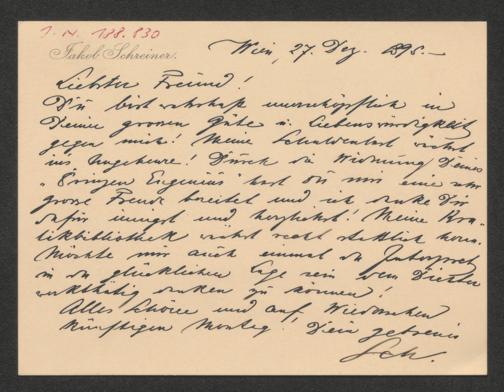 I.N. 188.830
Jakob Schreiner.
Wien, 27. Dez. 1898.—
Liebster Freund!
Du bist wahrhaft unerschöpflich in
Deiner grossen Güte u. Liebenswürdigkeit
gegen mich! Meine Schuldenlast wächst
ins Ungeheure! Durch die Widmung Deines
"Prinzen Eugenius" hast du mir eine sehr
grosse Freude bereitet und ich danke Dir
dafür innigst und herzlichst! Meine
wächst recht stattlich heran.
Möchte mir auch einmal
in der glücklichen Lage sein dem Dichter
werkthätig danken zu können!
Alles Schöne und auf Wiedersehen
künftigen Montag! Dein getreuer
Sch.